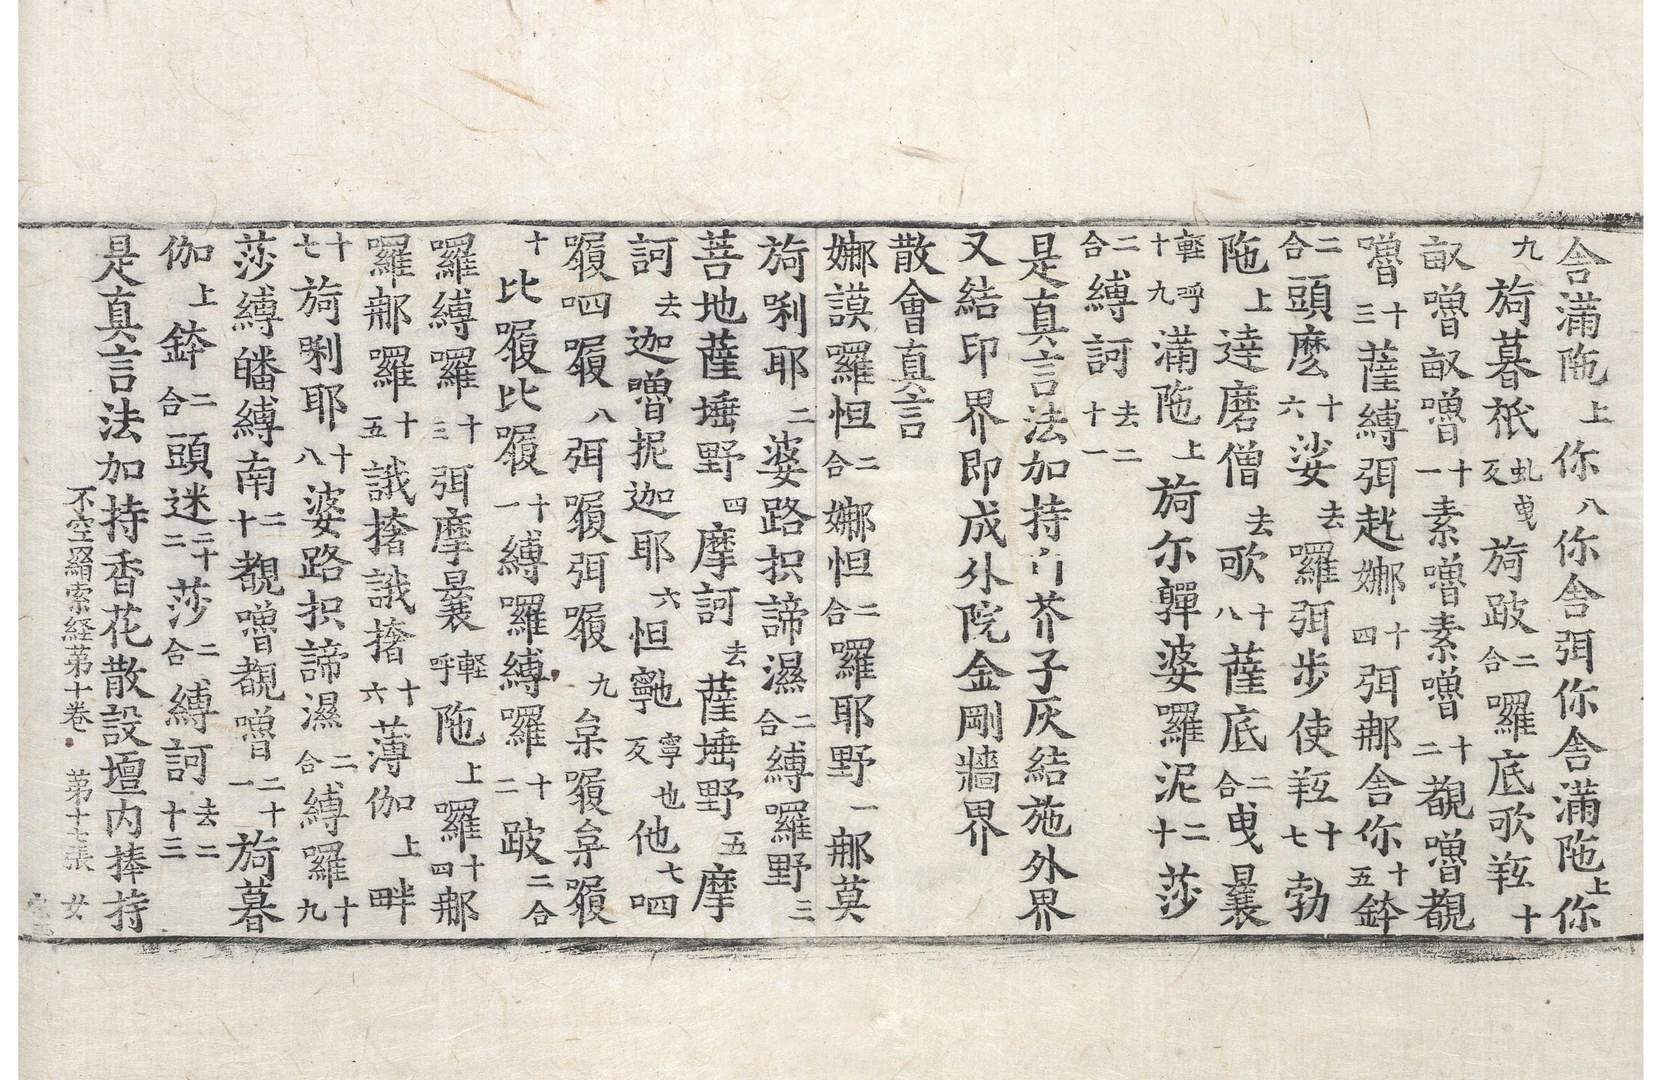 舍滿陁上你八你舍弭你舍滿陁上你
九旖暮祇虬曳反旖跛二合囉底歌䟦十
㕞嚕㕞嚕十一素嚕素嚕十二覩嚕覩
嚕十三薩縛弭趂娜十四弭那舍你十五鉢
二合頭麽十六娑去囉弭步使䟦十七勃
陁上達磨僧去歌十八薩底二合曳曩
輕呼十九滿陁上旖尓亸婆囉泥二十莎
二合縛訶去二十一
是真言法加持白芥子灰結施外界
又結印界即成外院金剛牆界
散會真言
娜謨囉怛二合娜怛二合囉耶野一那莫
旖唎耶二婆路抧諦濕二合縛囉野三
菩地薩埵野四摩訶去薩埵野五摩
訶去迦嚕抳迦耶六怛㔧寧也反他七呬
履呬履八弭履弭履九枲履枲履
十比履比履十一縛囉縛囉十二跛二合
囉縛囉十三弭摩曩輕呼陁上囉十四那
囉那囉十五誐撦誐撦十六薄伽上畔
十七旖唎耶十八婆路抧諦濕二合縛囉十九
莎縛皤縛南二十覩嚕覩嚕二十一旖暮
伽上鉢二合頭迷二十二莎二合縛訶去二十三
是真言法加持香花散設壇内捧持
不空羂索経苐十卷　苐十七張　女